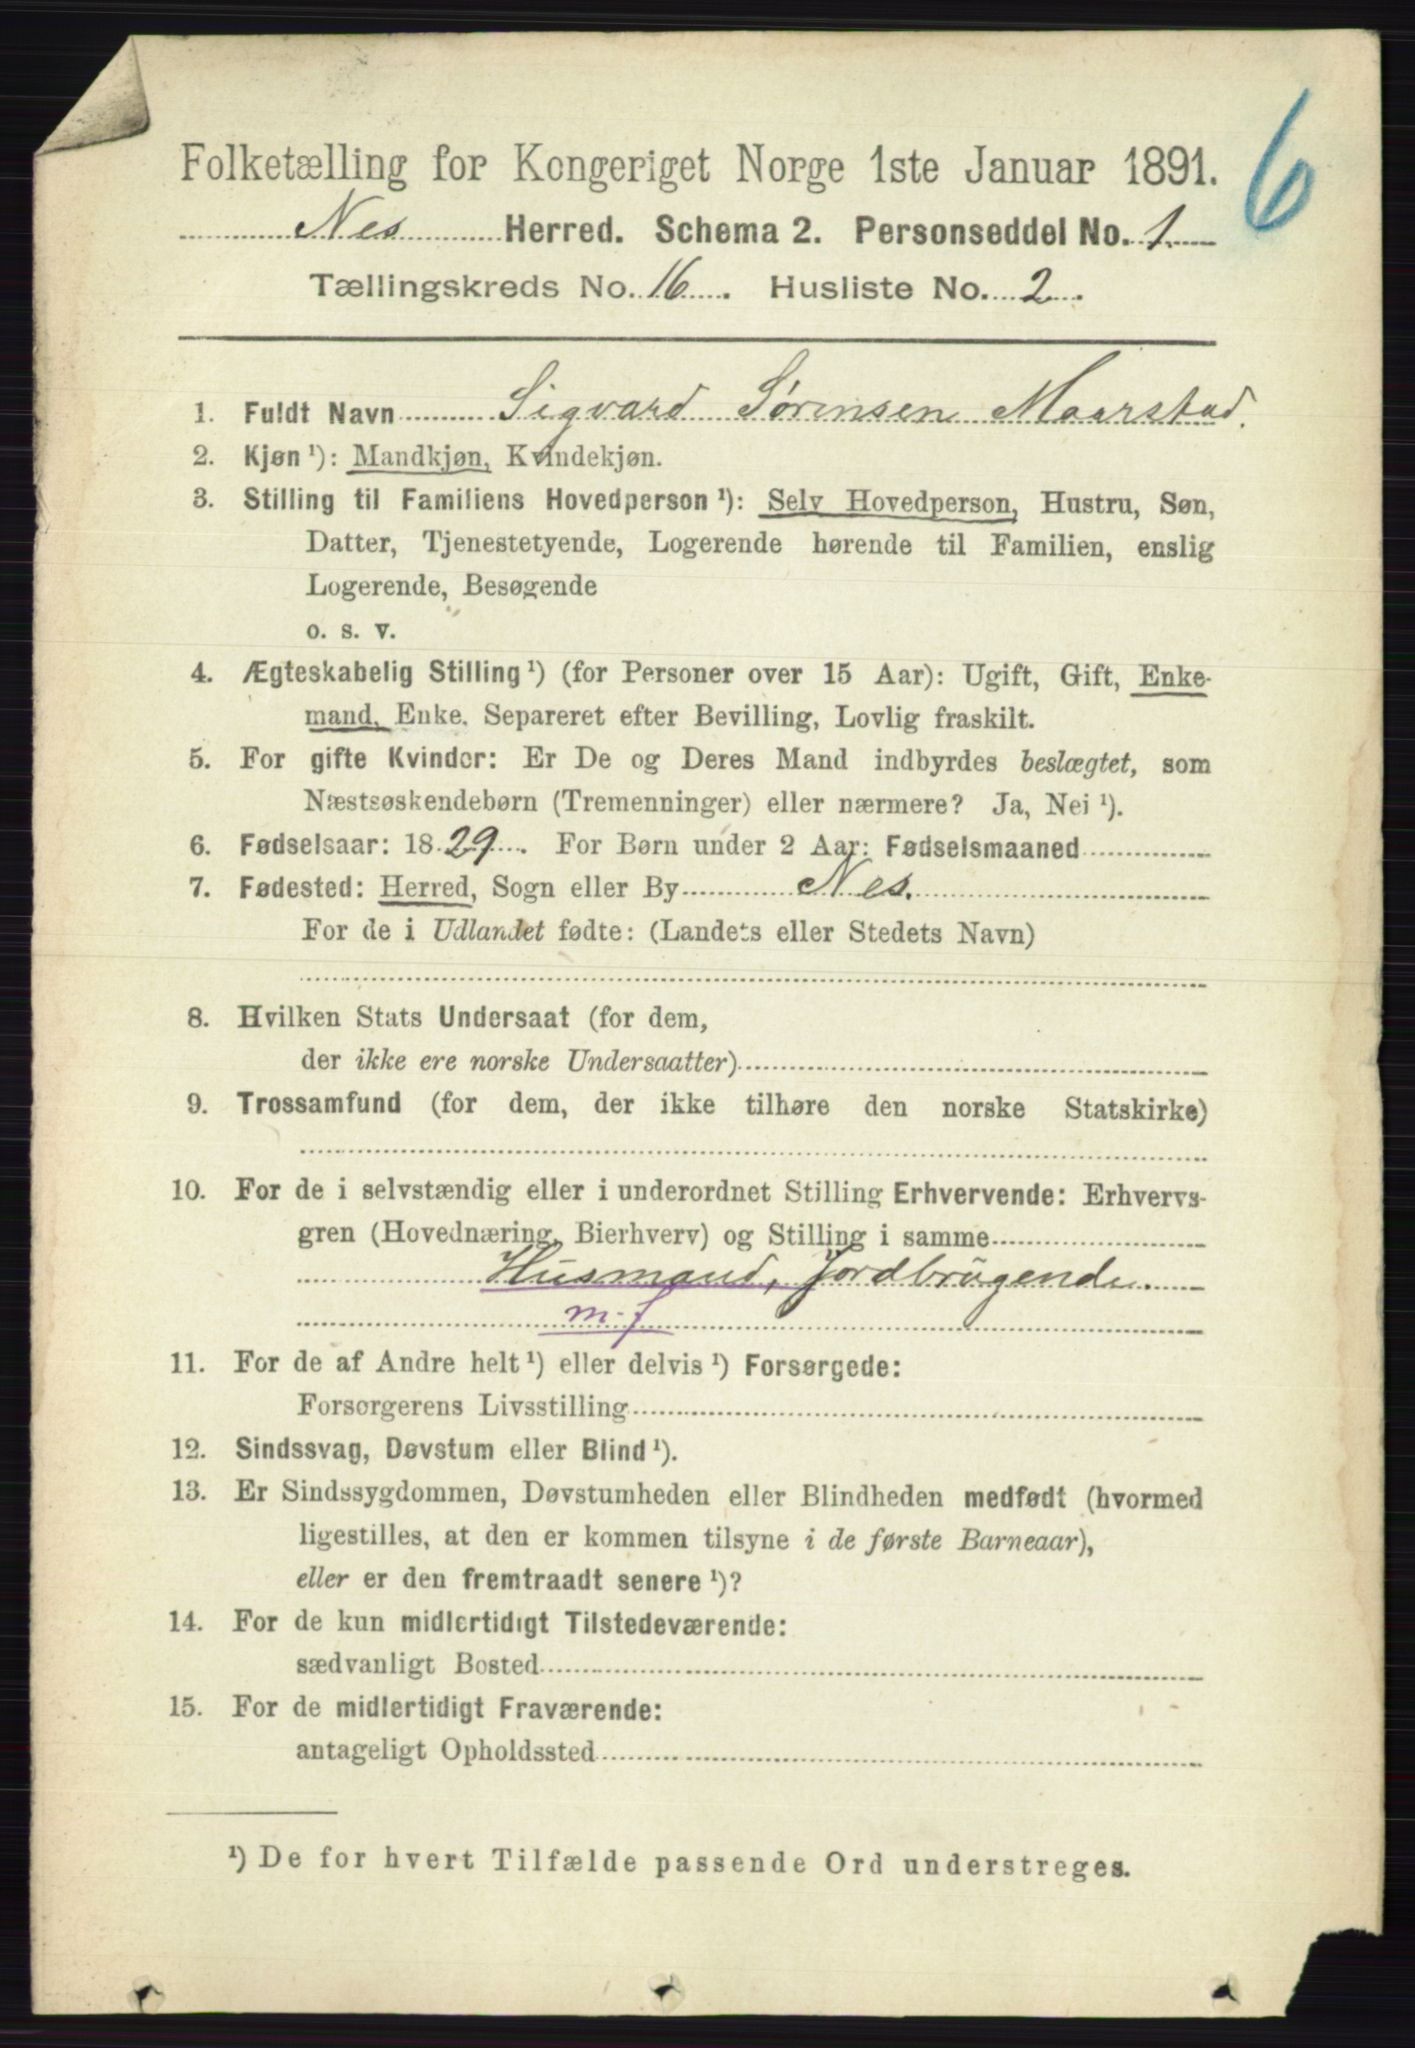 6
Folketælling for Kongeriget Norge 1ste Januar 1891.
Nes Herred. Schema 2. Personseddel No. 1
Tællingskreds No. 16. Husliste No. 2.
1. Fuldt Navn Sigvard Sørensen Maarstad.
2. Kjøn ¹): Mandkjøn, Kvindekjøn.
3. Stilling til Familiens Hovedperson ¹): Selv Hovedperson, Hustru, Søn,
Datter, Tjenestetyende, Logerende hørende til Familien, enslig
Logerende, Besøgende
o. s. v.
4. Ægteskabelig Stilling ¹) (for Personer over 15 Aar): Ugift, Gift, Enke-
mand, Enke. Separeret efter Bevilling, Lovlig fraskilt.
5. For gifte Kvinder: Er De og Deres Mand indbyrdes beslægtet, som
Næstsøskendebørn (Tremenninger) eller nærmere? Ja, Nei ¹).
6. Fødselsaar: 1829. For Børn under 2 Aar: Fødselsmaaned
7. Fødested: Herred, Sogn eller By Nes.
For de i Udlandet fødte: (Landets eller Stedets Navn)
8. Hvilken Stats Undersaat (for dem,
der ikke ere norske Undersaatter)
9. Trossamfund (for dem, der ikke tilhøre den norske Statskirke)
10. For de i selvstændig eller i underordnet Stilling Erhvervende: Erhvervs-
gren (Hovednæring, Bierhverv) og Stilling i samme
Husmand, Jordbrugende.
m. f
11. For de af Andre helt ¹) eller delvis ¹) Forsørgede:
Forsørgerens Livsstilling
12. Sindssvag, Døvstum eller Blind ¹).
13. Er Sindssygdommen, Døvstumheden eller Blindheden medfødt (hvormed
ligestilles, at den er kommen tilsyne i de første Barneaar),
eller er den fremtraadt senere ¹)?
14. For de kun midlertidigt Tilstedeværende:
sædvanligt Bosted
15. For de midlertidigt Fraværende:
antageligt Opholdssted
¹) De for hvert Tilfælde passende Ord understreges.